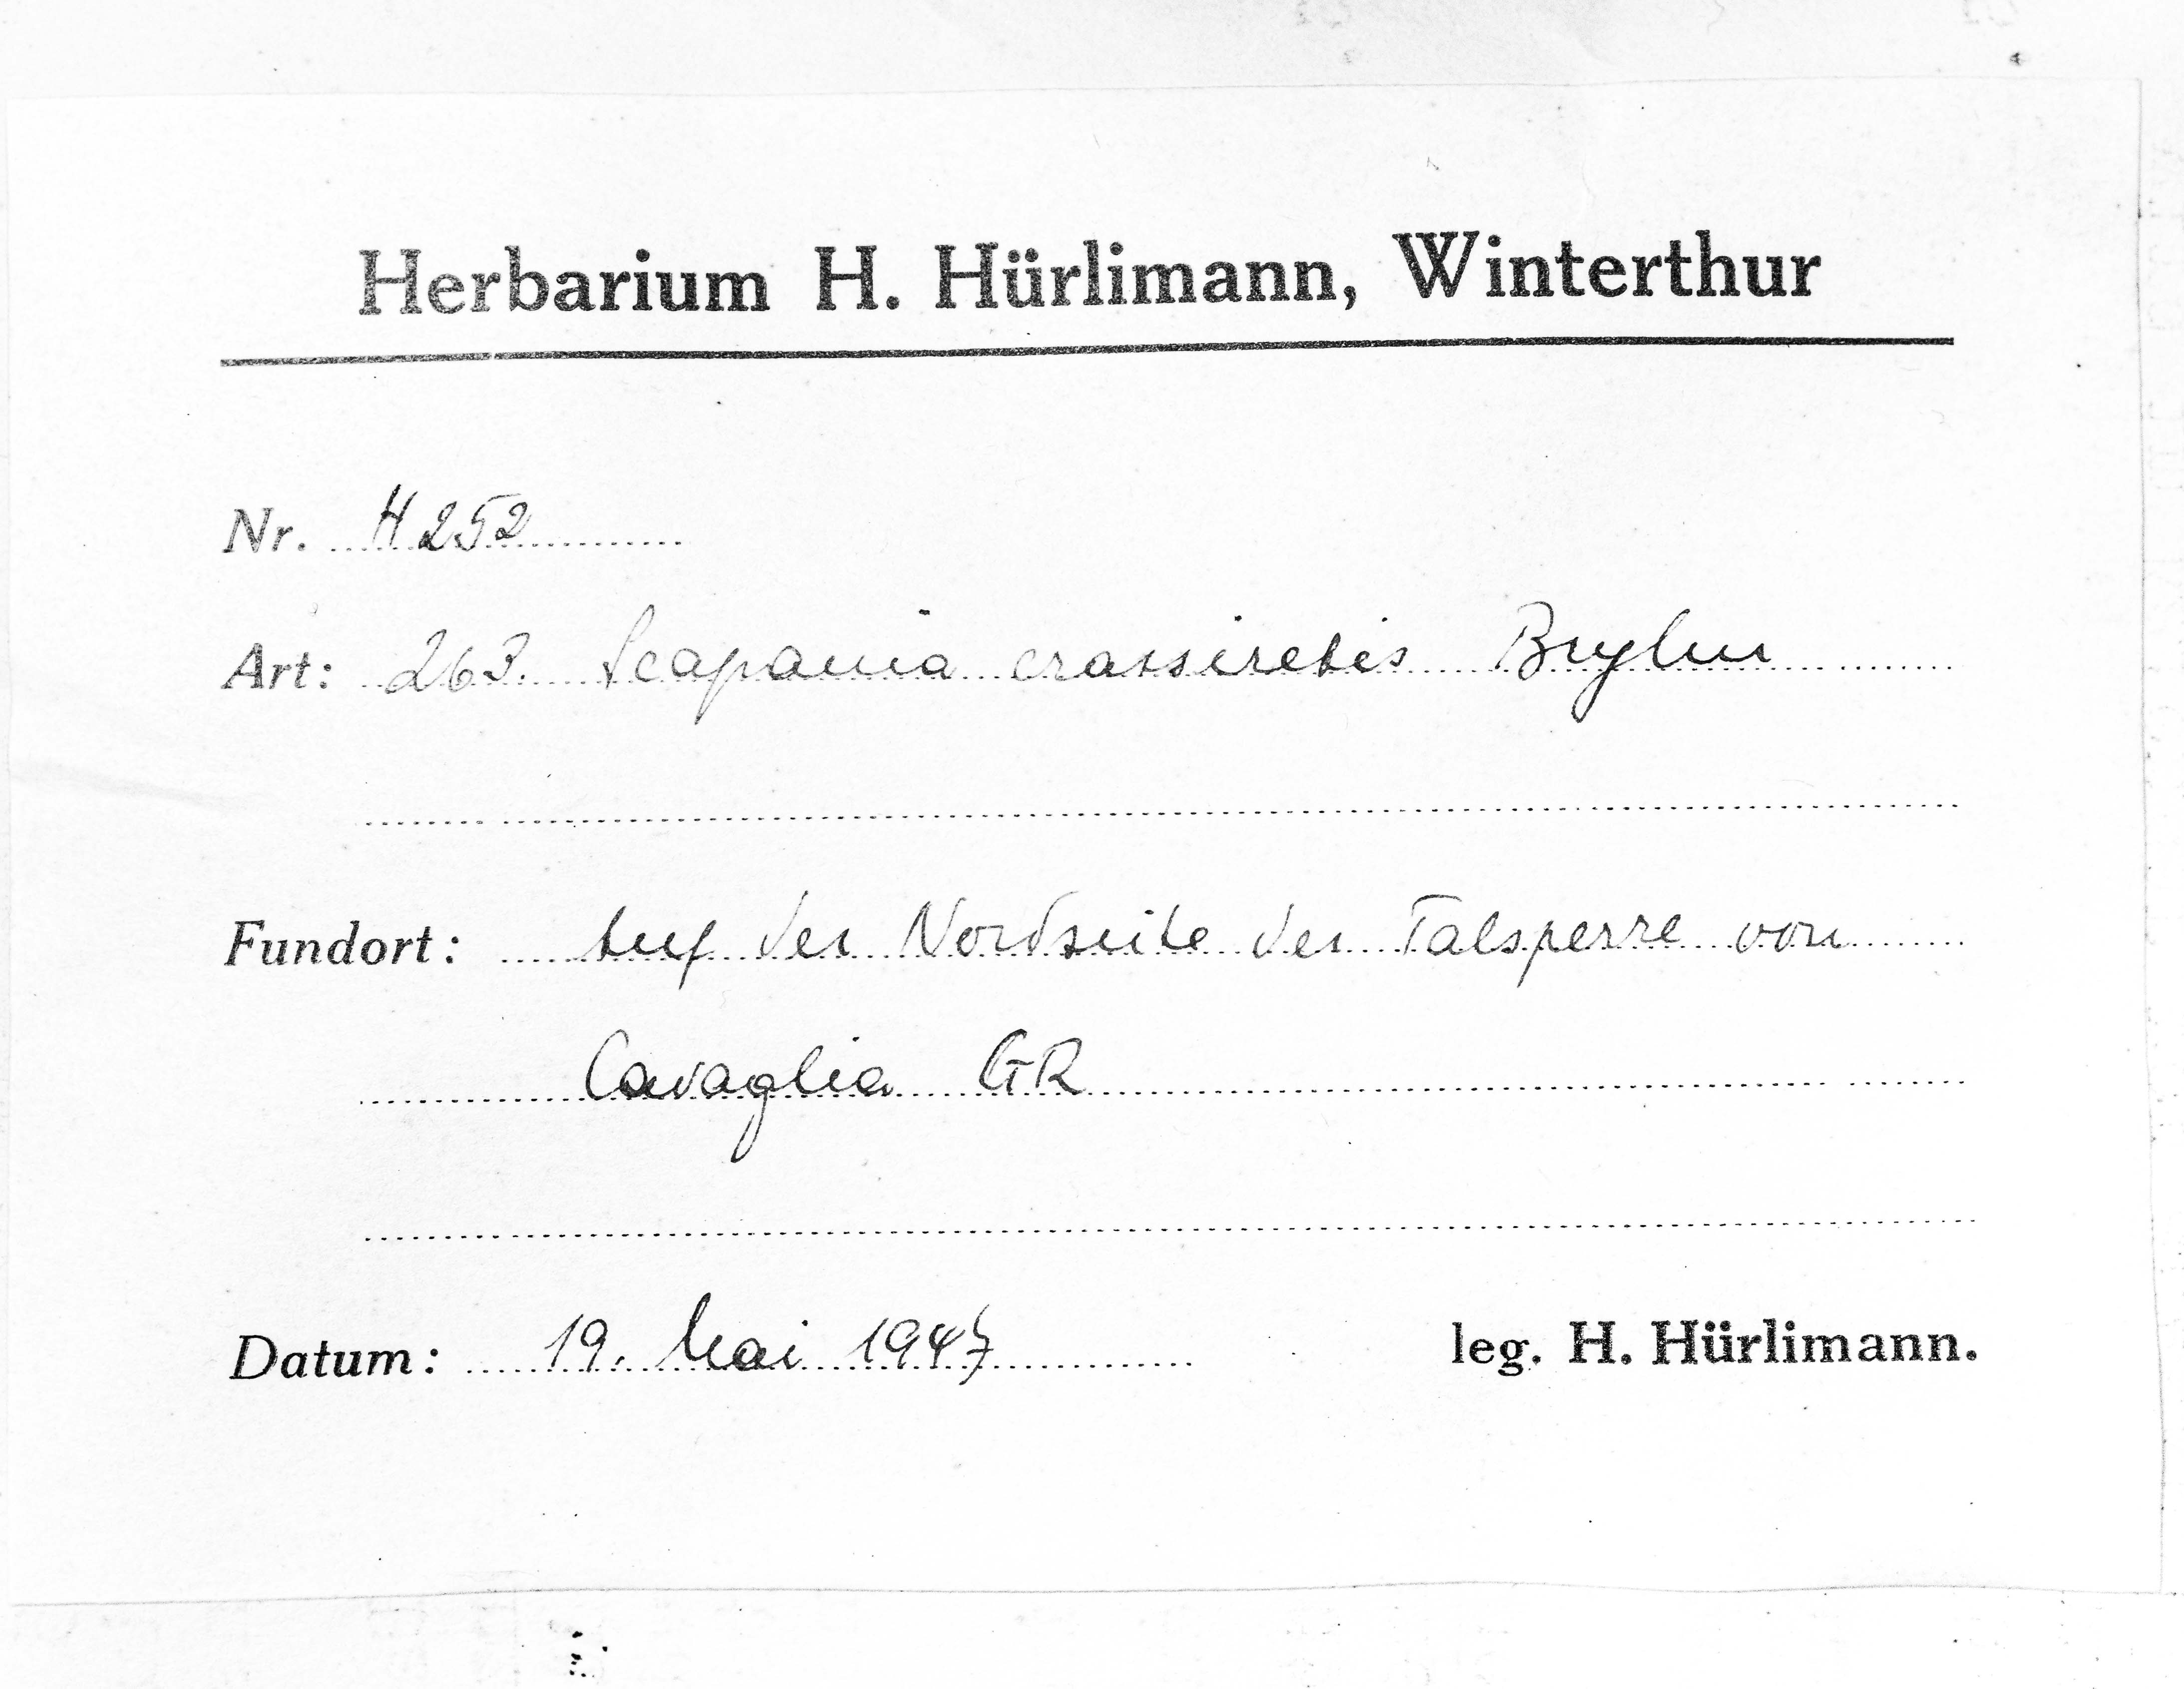 Herbarium H. Hürlimann, Winterthur
Nr. H 252
Art: 263. Scapania crassiretis Bryhn
Fundort: Auf der Nordseite der Talsperre von
Cavaglia GR
Datum: 19. Mai 1947
leg. H. Hürlimann.